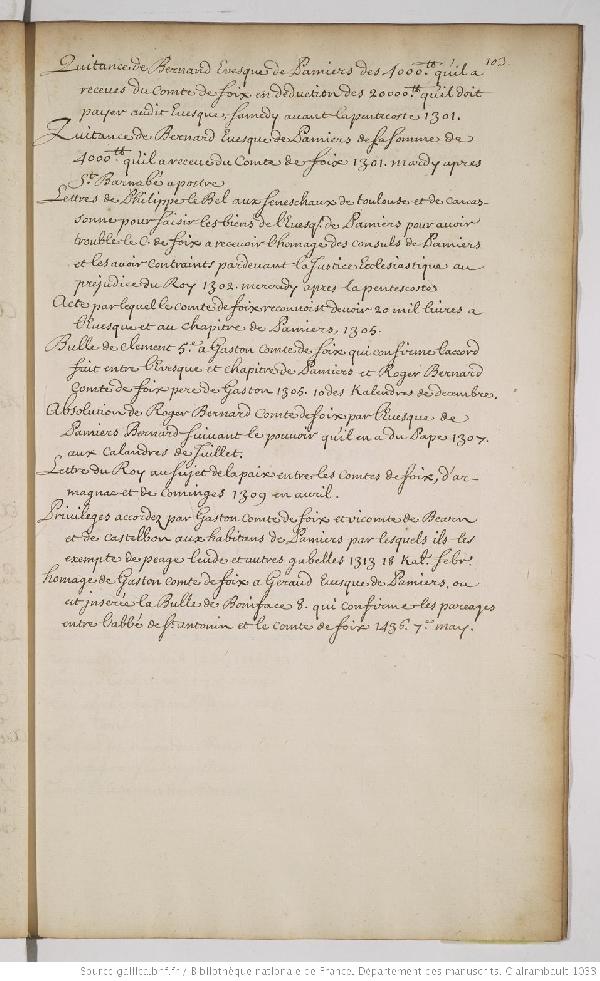 103
Quitance de Bernard Evesque de Pamiers des 4000.tt qu'il a
receues du Comte de foix en deduction des 20000tt qu'il doit
payer audit Evesque, samedy auant la pentecoste 1301.
Quitance de Bernard Evesque de Pamiers de la somme de
4000.tt qu'il a receue du Comte de foix 1301. mardy apres
St. Barnabé apostre
Lettres de Philippe le Bel aux seneschaux de toulouse et de Carcas-
sonne pour saisir les biens de l'Evesq. de Pamiers pour auoir
troublé le C. de foix a receuoir l'homage des consuls de Pamiers
et les auoir contraints pardeuant la Justice Ecclesiastique au
prejudice du Roy 1302. mercredy apres la pentecoste
Acte par lequel le comte de foix reconnoist deuoir 20 mil liures a
l'Euesque et au chapitre de Pamiers, 1305.
Bulle de Clement 5.e a Gaston Comte de foix qui confirme l'accord
fait entre l'Evesque et chapitre de Pamiers et Roger Bernard
Comte de foix pere de Gaston 1305. 10 des Kalendes de decembre.
Absolution de Roger Bernard Comte de foix par l'Euesque de
Pamiers Bernard suiuant le pouuoir qu'il en a du Pape 1307.
aux Calandres de Juillet.
Lettre du Roy au sujet de la paix entre les Comtes de foix, d'ar-
magnac et de Cominges 1309 en auril.
Priuileges accordez par Gaston Comte de foix et vicomte de Bearn
et de Castelbon aux habitans de Pamiers par lesquels ils les
exempte de peage leude et autres gabelles 1313 18 Kal. febr.
homage de Gaston Comte de foix a Geraud Euesque de Pamiers, ou
est inserée la Bulle de Boniface 8. qui confirme les pareages
entre l'abbé de St. antonin et le Comte de foix 1436. 7.e may.
Source gallica.bnf.fr / Bibliothèque nationale de France. Département des manuscrits. Clairambault 1033